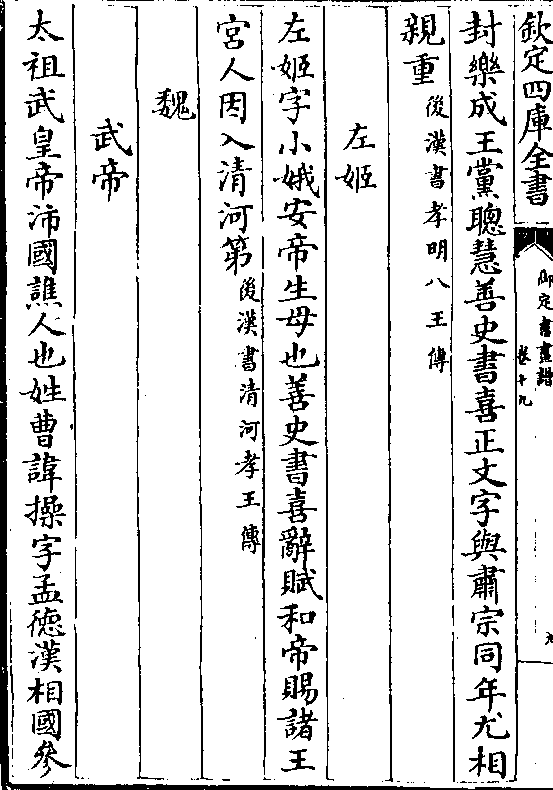 欽定四庫全書
御定書畫譜
卷十九
封樂成王黨聰慧善史書喜正文字與肅宗同年尤相
親重後漢書孝明八王傳
左姬
左姬字小娥安帝生母也善史書喜辭賦和帝賜諸王
宮人因入清河第後漢書清河孝王傳
魏
武帝
太祖武皇帝沛國譙人也姓曹諱操字孟德漢相國參